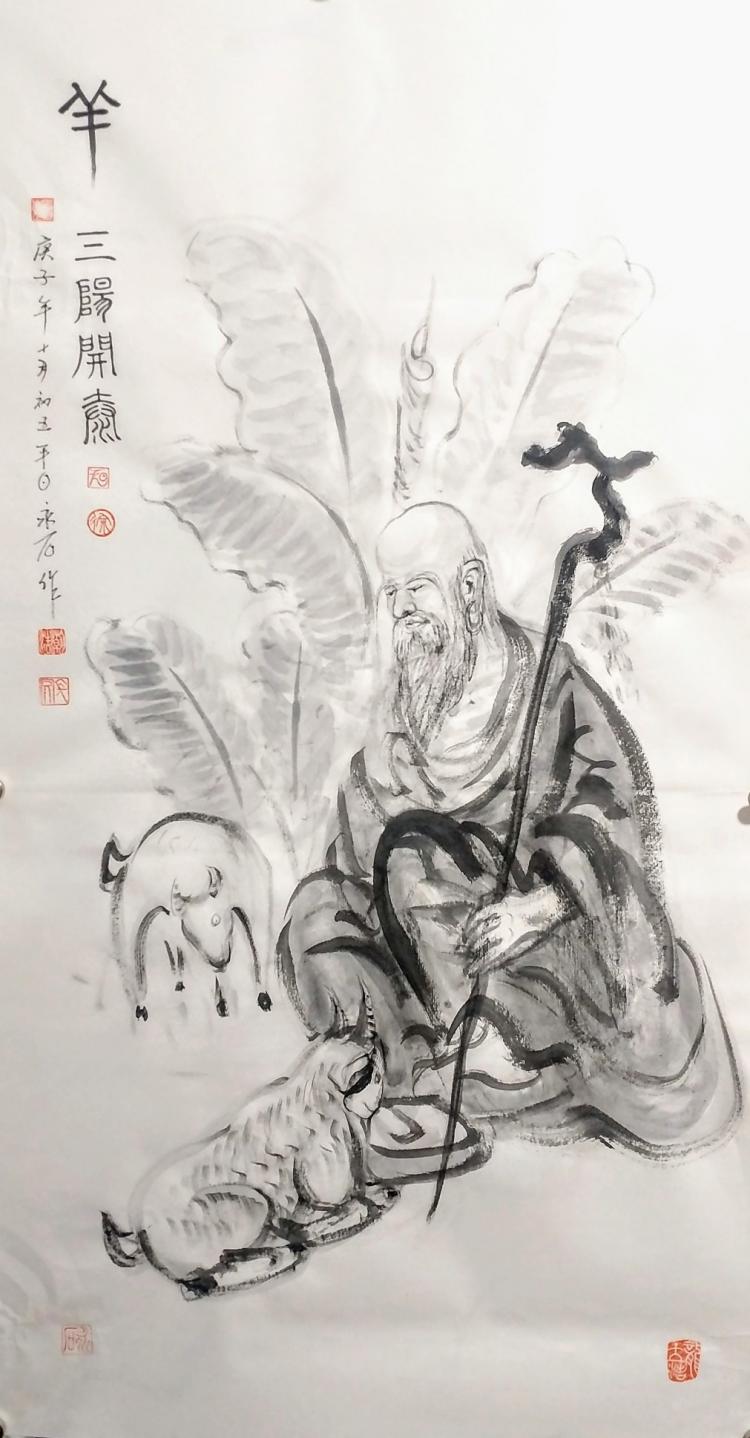 羊
三陽開泰
庚子年十月初五平日永石作
永石